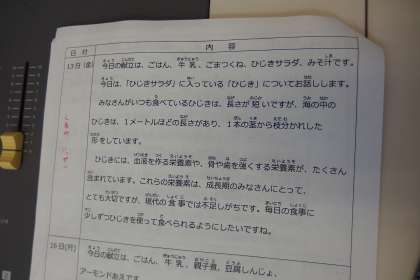 日付 内容
13日(金) 今日の献立は、ごはん、牛乳、ごまつくね、ひじきサラダ、みそ汁です。
今日は、「ひじきサラダ」に入っている「ひじき」についてお話しします。
みなさんがいつも食べているひじきは、長さが短いですが、海の中の
ひじきは、1メートルほどの長さがあり、1本の茎から枝分かれした
形をしています。
ひじきには、血液を作る栄養素や、骨や歯を強くする栄養素が、たくさん
含まれています。これらの栄養素は、成長期のみなさんにとって、
とても大切ですが、現代の食事では不足しがちです。毎日の食事に
少しずつひじきを使って食べられるようにしたいですね。
16日(月) 今日の献立は、ごはん、牛乳、親子煮、豆腐しんじょ、
アーモンドあえです。